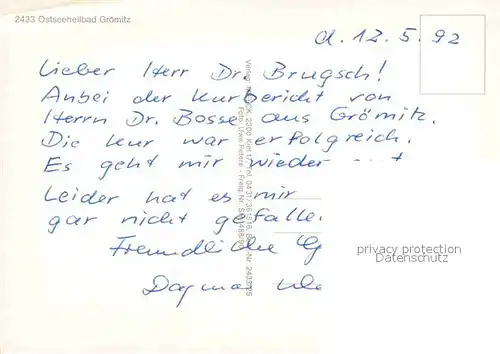 2433 Ostseeheilbad Grömitz
d. 12.5.92
Lieber Herr Dr. Brugsch!
Anbei der Kurbericht von
Herrn Dr. Bosse aus Grömitz.
Die Kur war erfolgreich.
Es geht mir wieder
Leider hat es mir
gar nicht gefalle
Freundliche G
Dagma
privacy protection
Datenschutz